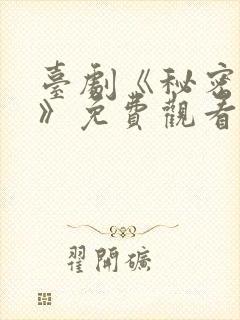 臺劇《秘密
》免費觀看
翟開礦